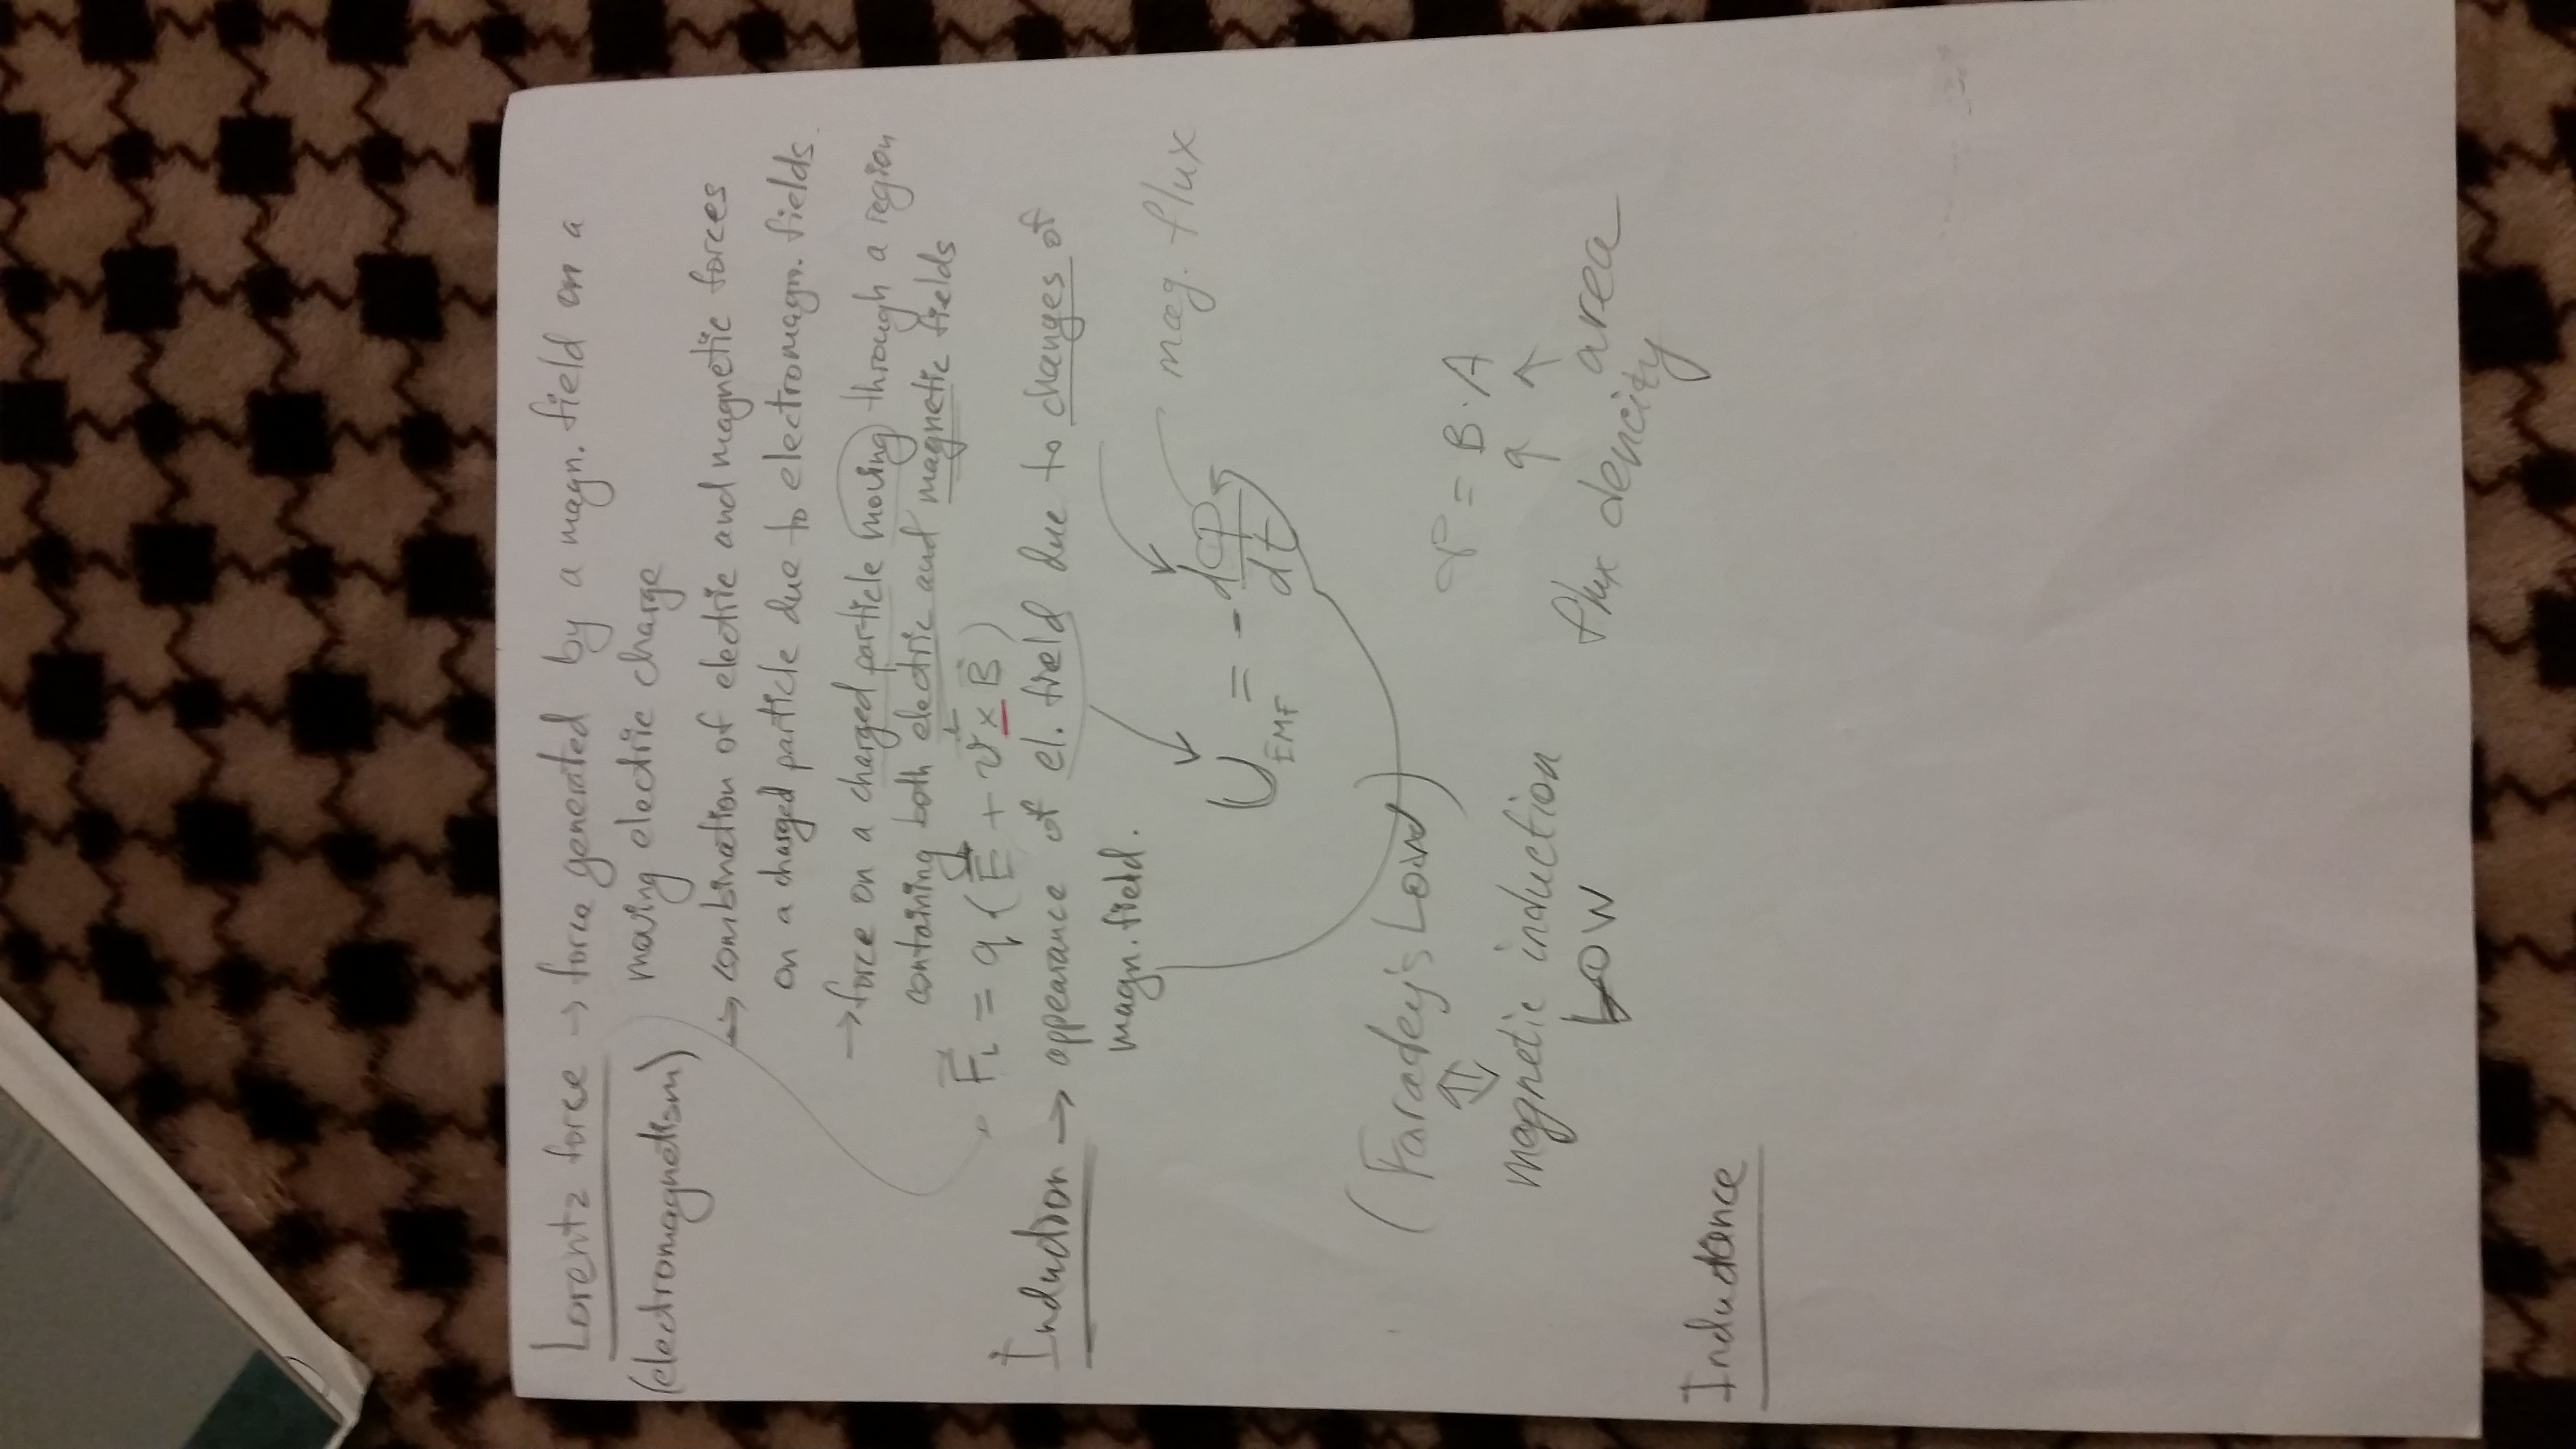 Lorentz force → force generated by a magn. field on a
(electromagnetism) moving electric charge
→ combination of electric and magnetic forces
on a charged particle due to electromagn. fields.
→ force on a charged particle moving through a region
containing both electric and magnetic fields
F⃗L = q (E⃗ + v⃗ × B⃗)
Induction → appearance of el. field due to changes of
magn. field.
mag. flux
U EMF = - dφ/dt
(Faradey's Low)
φ = B · A
magnetic induction
Low
flux dencity area
Inductance